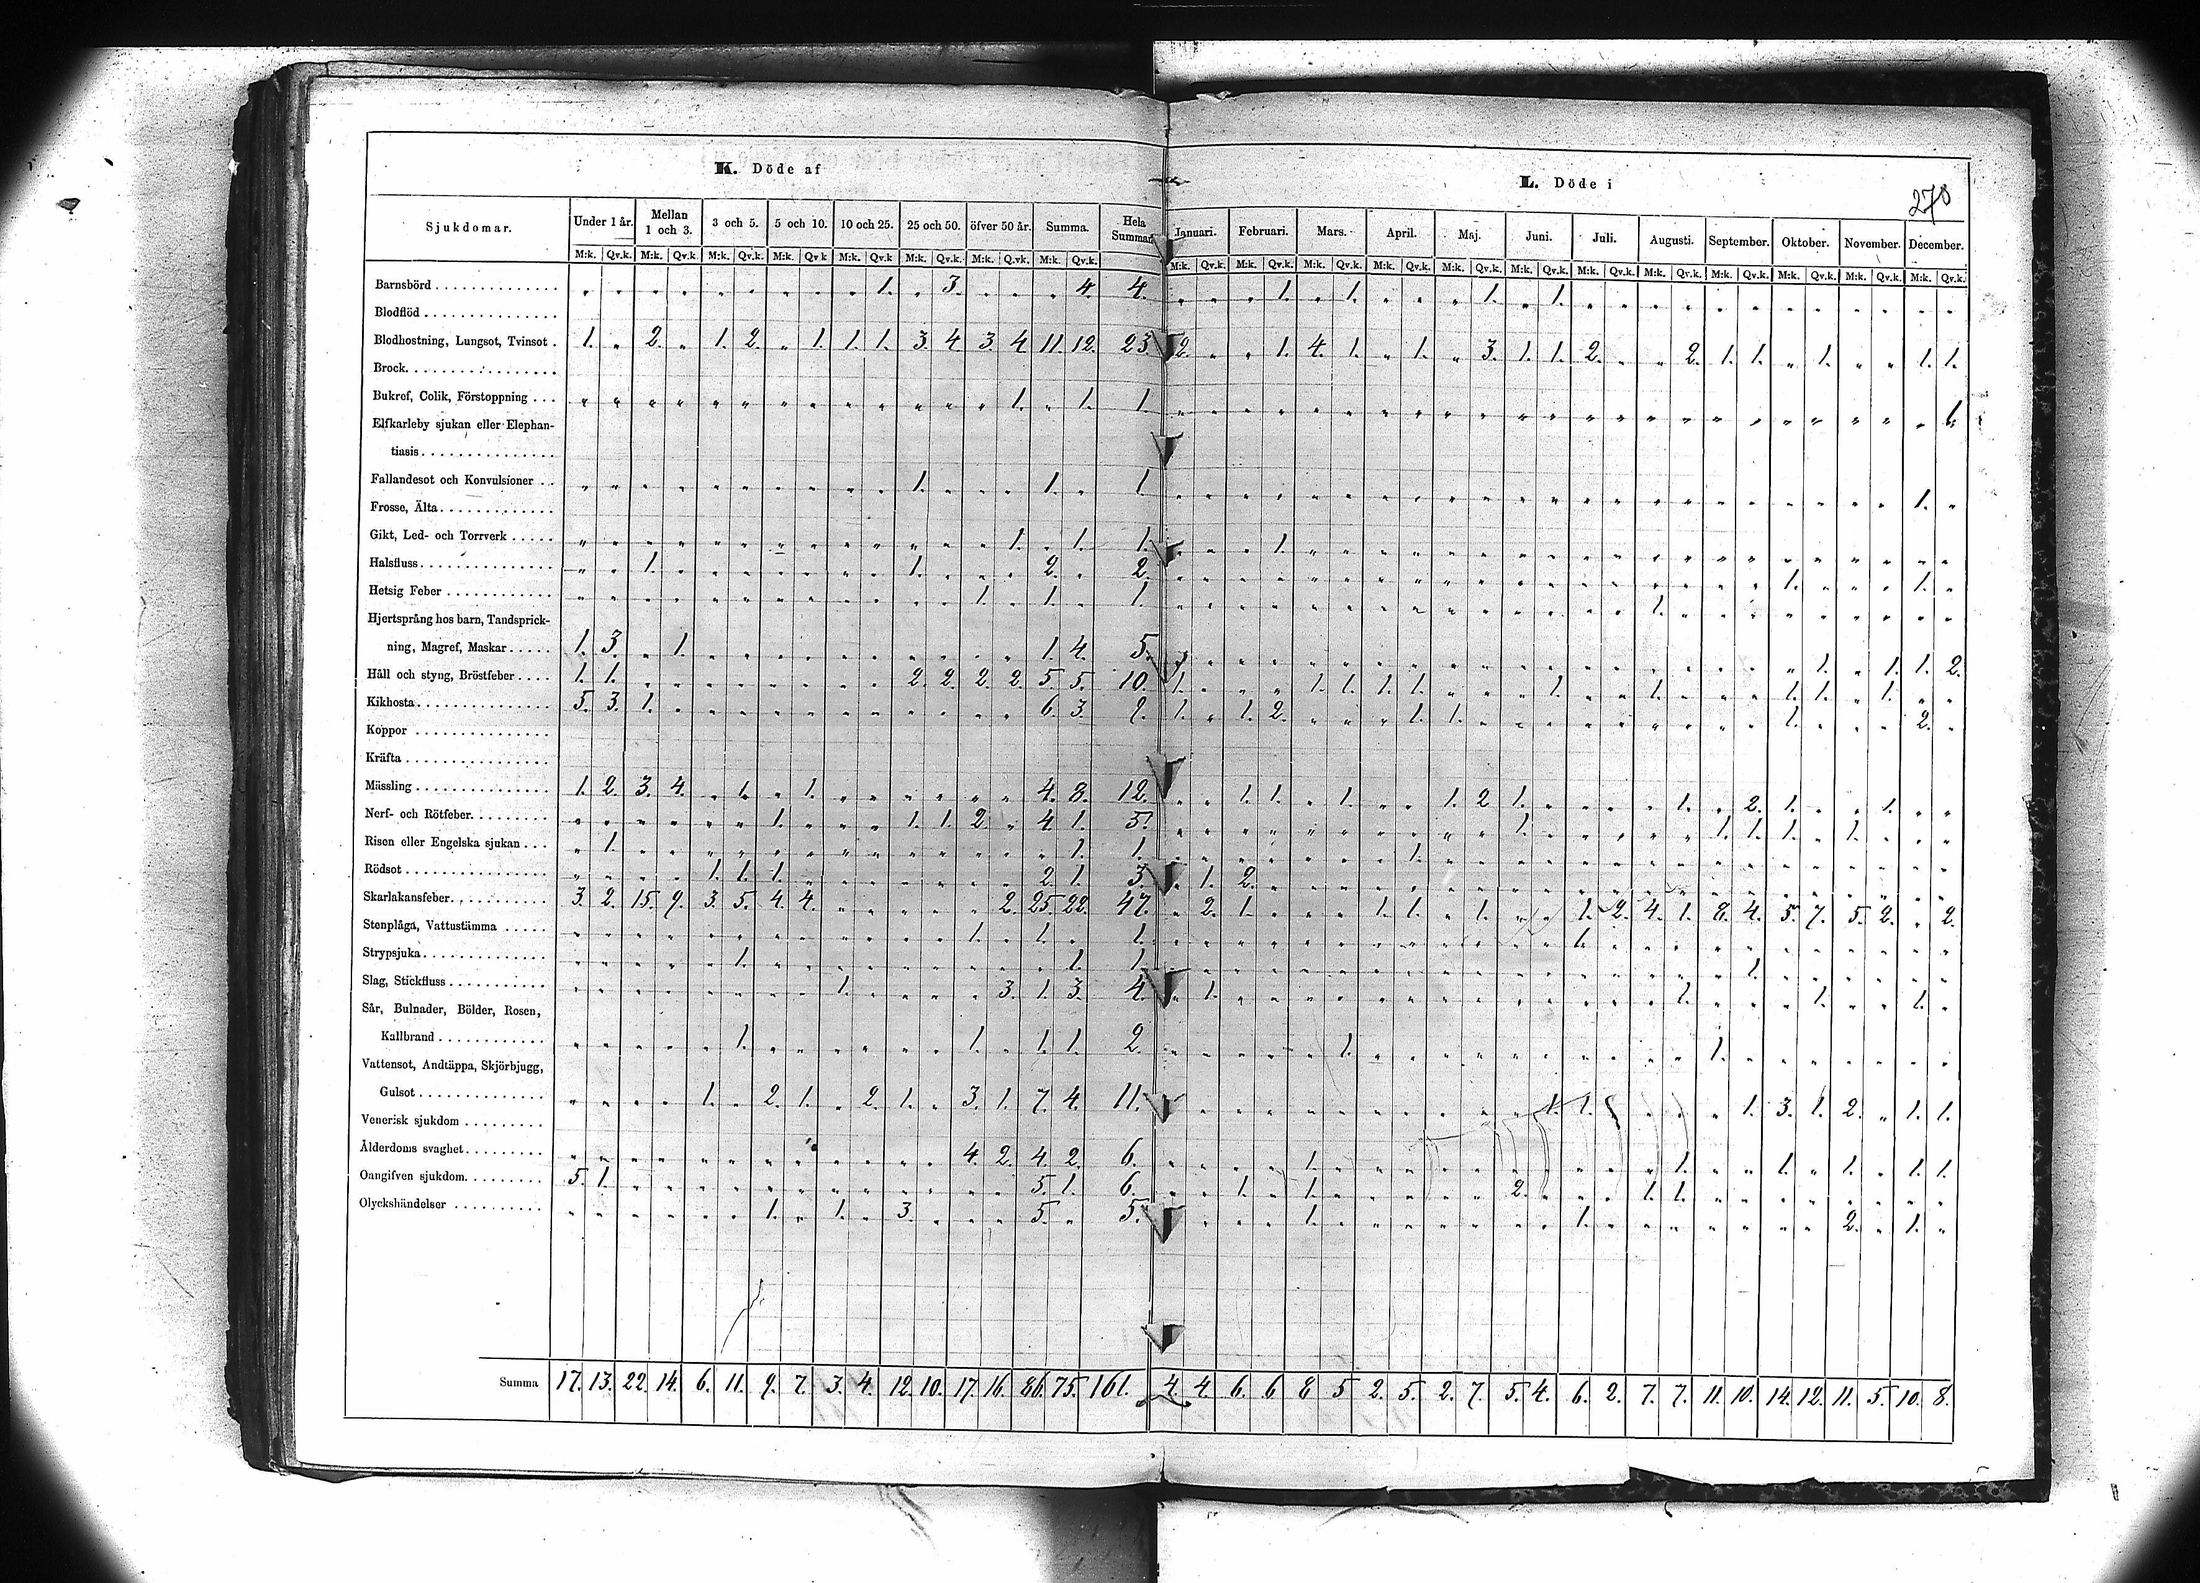 K. Döde af
L. Döde i
270
Sjukdomar. Under 1 år. Mellan 1 och 3. 3 och 5. 5 och 10. 10 och 25. 25 och 50. öfver 50 år. Summa. Hela Summan Januari. Februari. Mars. April. Maj. Juni. Juli. Augusti. September. Oktober. November. December.
M:k. Qv.k. M:k. Qv.k. M:k. Qv.k. M:k. Qv.k M:k. Qv.k M:k. Qv.k. M:k. Qv.k. M:k. Qv.k. M:k. Qv.k. M:k. Qv.k. M:k. Qv.k. M:k. Qv.k. M:k. Qv.k. M:k. Qv.k. M:k. Qv.k. M:k. Qv.k. M:k. Qv.k. M:k. Qv.k. M:k. Qv.k. M:k. Qv.k.
Barnsbörd „ „ „ „ „ „ „ „ „ 1. „ 3. „ „ „ 4. 4. „ „ „ 1. „ 1. „ „ „ 1. „ 1. „ „ „ „ „ „ „ „ „ „ „ „
Blodflöd
Blodhostning, Lungsot, Tvinsot 1. „ 2. „ 1. 2. „ 1. 1. 1. 3. 4. 3. 4. 11. 12. 23. 2. „ „ 1. 4. 1. „ 1. „ 3. 1. 1. 2. „ „ 2. 1. 1. „ 1. „ „ 1. 1.
Brock
Bukref, Colik, Förstoppning „ „ „ „ „ „ „ „ „ „ „ „ „ 1. „ 1. 1. „ „ „ „ „ „ „ „ „ „ „ „ „ „ „ „ „ „ „ „ „ „ „ 1.
Elfkarleby sjukan eller Elephan-
tiasis
Fallandesot och Konvulsioner „ „ „ „ „ „ „ „ „ „ 1. „ „ „ 1. „ 1 „ „ „ „ „ „ „ „ „ „ „ „ „ „ „ „ „ „ „ „ „ „ 1. „
Frosse, Älta
Gikt, Led- och Torrverk „ „ „ „ „ „ „ „ „ „ „ „ „ 1. „ 1. 1. „ „ „ 1. „ „ „ „ „ „ „ „ „ „ „ „ „ „ „ „ „ „ „ „
Halsfluss „ „ 1. „ „ „ „ „ „ „ 1. „ „ „ 2. „ 2. „ „ „ „ „ „ „ „ „ „ „ „ „ „ „ „ „ „ 1. „ „ „ 1. „
Hetsig Feber „ „ „ „ „ „ „ „ „ „ „ „ 1. „ 1. „ 1. „ „ „ „ „ „ „ „ „ „ „ „ „ „ 1. „ „ „ „ „ „ „ „ „
Hjertsprång hos barn, Tandsprick-
ning, Magref, Maskar 1. 3. „ 1. „ „ „ „ „ „ „ „ „ „ 1. 4. 5. „ „ „ „ „ „ „ „ „ „ „ „ „ „ „ „ „ „ 1. „ 1. 1. 2.
Håll och styng, Bröstfeber 1. 1. „ „ „ „ „ „ „ „ 2. 2. 2. 2. 5. 5. 10. 1. „ „ „ 1. 1. 1. 1. „ „ „ 1. „ „ 1. „ „ „ 1. 1. „ 1. „ „
Kikhosta 5. 3. 1. „ „ „ „ „ „ „ „ „ „ „ 6. 3. 9. 1. „ 1. 2. „ „ „ 1. 1. „ „ „ „ „ „ „ „ „ 1. „ „ „ 2. „
Koppor
Kräfta
Mässling 1. 2. 3. 4. „ 1. „ 1. „ „ „ „ „ „ 4. 8. 12. „ „ 1. 1. „ 1. „ „ 1. 2 1. „ „ „ „ 1. „ 2. 1. „ „ 1. „ „
Nerf- och Rötfeber „ „ „ „ „ „ 1. „ „ „ 1. 1. 2. „ 4. 1. 5. „ „ „ „ „ „ „ „ „ „ 1. „ „ „ „ „ 1. 1. 1. „ 1. „ „ „
Risen eller Engelska sjukan „ 1. „ „ „ „ „ „ „ „ „ „ „ „ „ 1. 1. „ „ „ „ „ „ „ 1. „ „ „ „ „ „ „ „ „ „ „ „ „ „ „ „
Rödsot „ „ „ „ 1. 1. 1. „ „ „ „ „ „ „ 2. 1. 3. „ 1. 2. „ „ „ „ „ „ „ „ „ „ „ „ „ „ „ „ „ „ „ „ „
Skarlakansfeber 3. 2. 15. 9. 3. 5. 4. 4. „ „ „ „ „ 2. 25. 22. 47. „ 2. 1. „ „ „ 1. 1. „ 1. „ „ 1. 2. 4. 1. 8. 4. 5. 7. 5. 2. „ 2.
Stenplåga, Vattustämma „ „ „ „ „ „ „ „ „ „ „ „ 1. „ 1. „ 1. „ „ „ „ „ „ „ „ „ „ „ „ 1. „ „ „ „ „ „ „ „ „ „ „
Strypsjuka „ „ „ „ „ 1. „ „ „ „ „ „ „ „ „ 1. 1. „ „ „ „ „ „ „ „ „ „ „ „ „ „ „ „ „ 1. „ „ „ „ „ „
Slag, Stickfluss „ „ „ „ „ „ „ „ 1. „ „ „ „ 3. 1. 3. 4. „ 1. „ „ „ „ „ „ „ „ „ „ „ „ „ 1. „ „ „ 1. „ „ 1. „
Sår, Bulnader, Bölder, Rosen,
Kallbrand „ „ „ „ „ 1. „ „ „ „ „ „ 1. „ 1. 1. 2. „ „ „ „ „ 1. „ „ „ „ „ „ „ „ „ „ 1. „ „ „ „ „ „ „
Vattensot, Andtäppa, Skjörbjugg,
Gulsot „ „ „ „ 1. „ 2. 1. „ 2. 1. „ 3. 1. 7. 4. 11. „ „ „ „ „ „ „ „ „ „ „ 1. 1. „ „ „ „ 1. 3. 1. 2. „ 1. 1.
Venerisk sjukdom
Ålderdoms svaghet „ „ „ „ „ „ „ „ „ „ „ „ 4. 2. 4. 2. 6. „ „ „ „ 1. „ „ „ „ „ „ „ „ „ „ 1. „ „ 1. „ 1. „ 1. 1.
Oangifven sjukdom 5. 1. „ „ „ „ „ „ „ „ „ „ „ „ 5. 1. 6. „ „ 1. „ 1. „ „ „ „ „ 2. „ „ „ 1. 1. „ „ „ „ „ „ „ „
Olyckshändelser „ „ „ „ „ „ 1. „ 1. „ 3. „ „ „ 5. „ 5. „ „ „ „ 1. „ „ „ „ „ „ „ 1. „ „ „ „ „ „ „ 2. „ 1. „
Summa 17. 13. 22. 14. 6. 11. 9. 7. 3. 4. 12. 10. 17. 16. 86. 75. 161. 4. 4. 6. 6 8 5 2. 5. 2. 7. 5. 4. 6. 2. 7. 7. 11. 10. 14. 12. 11. 5. 10. 8.